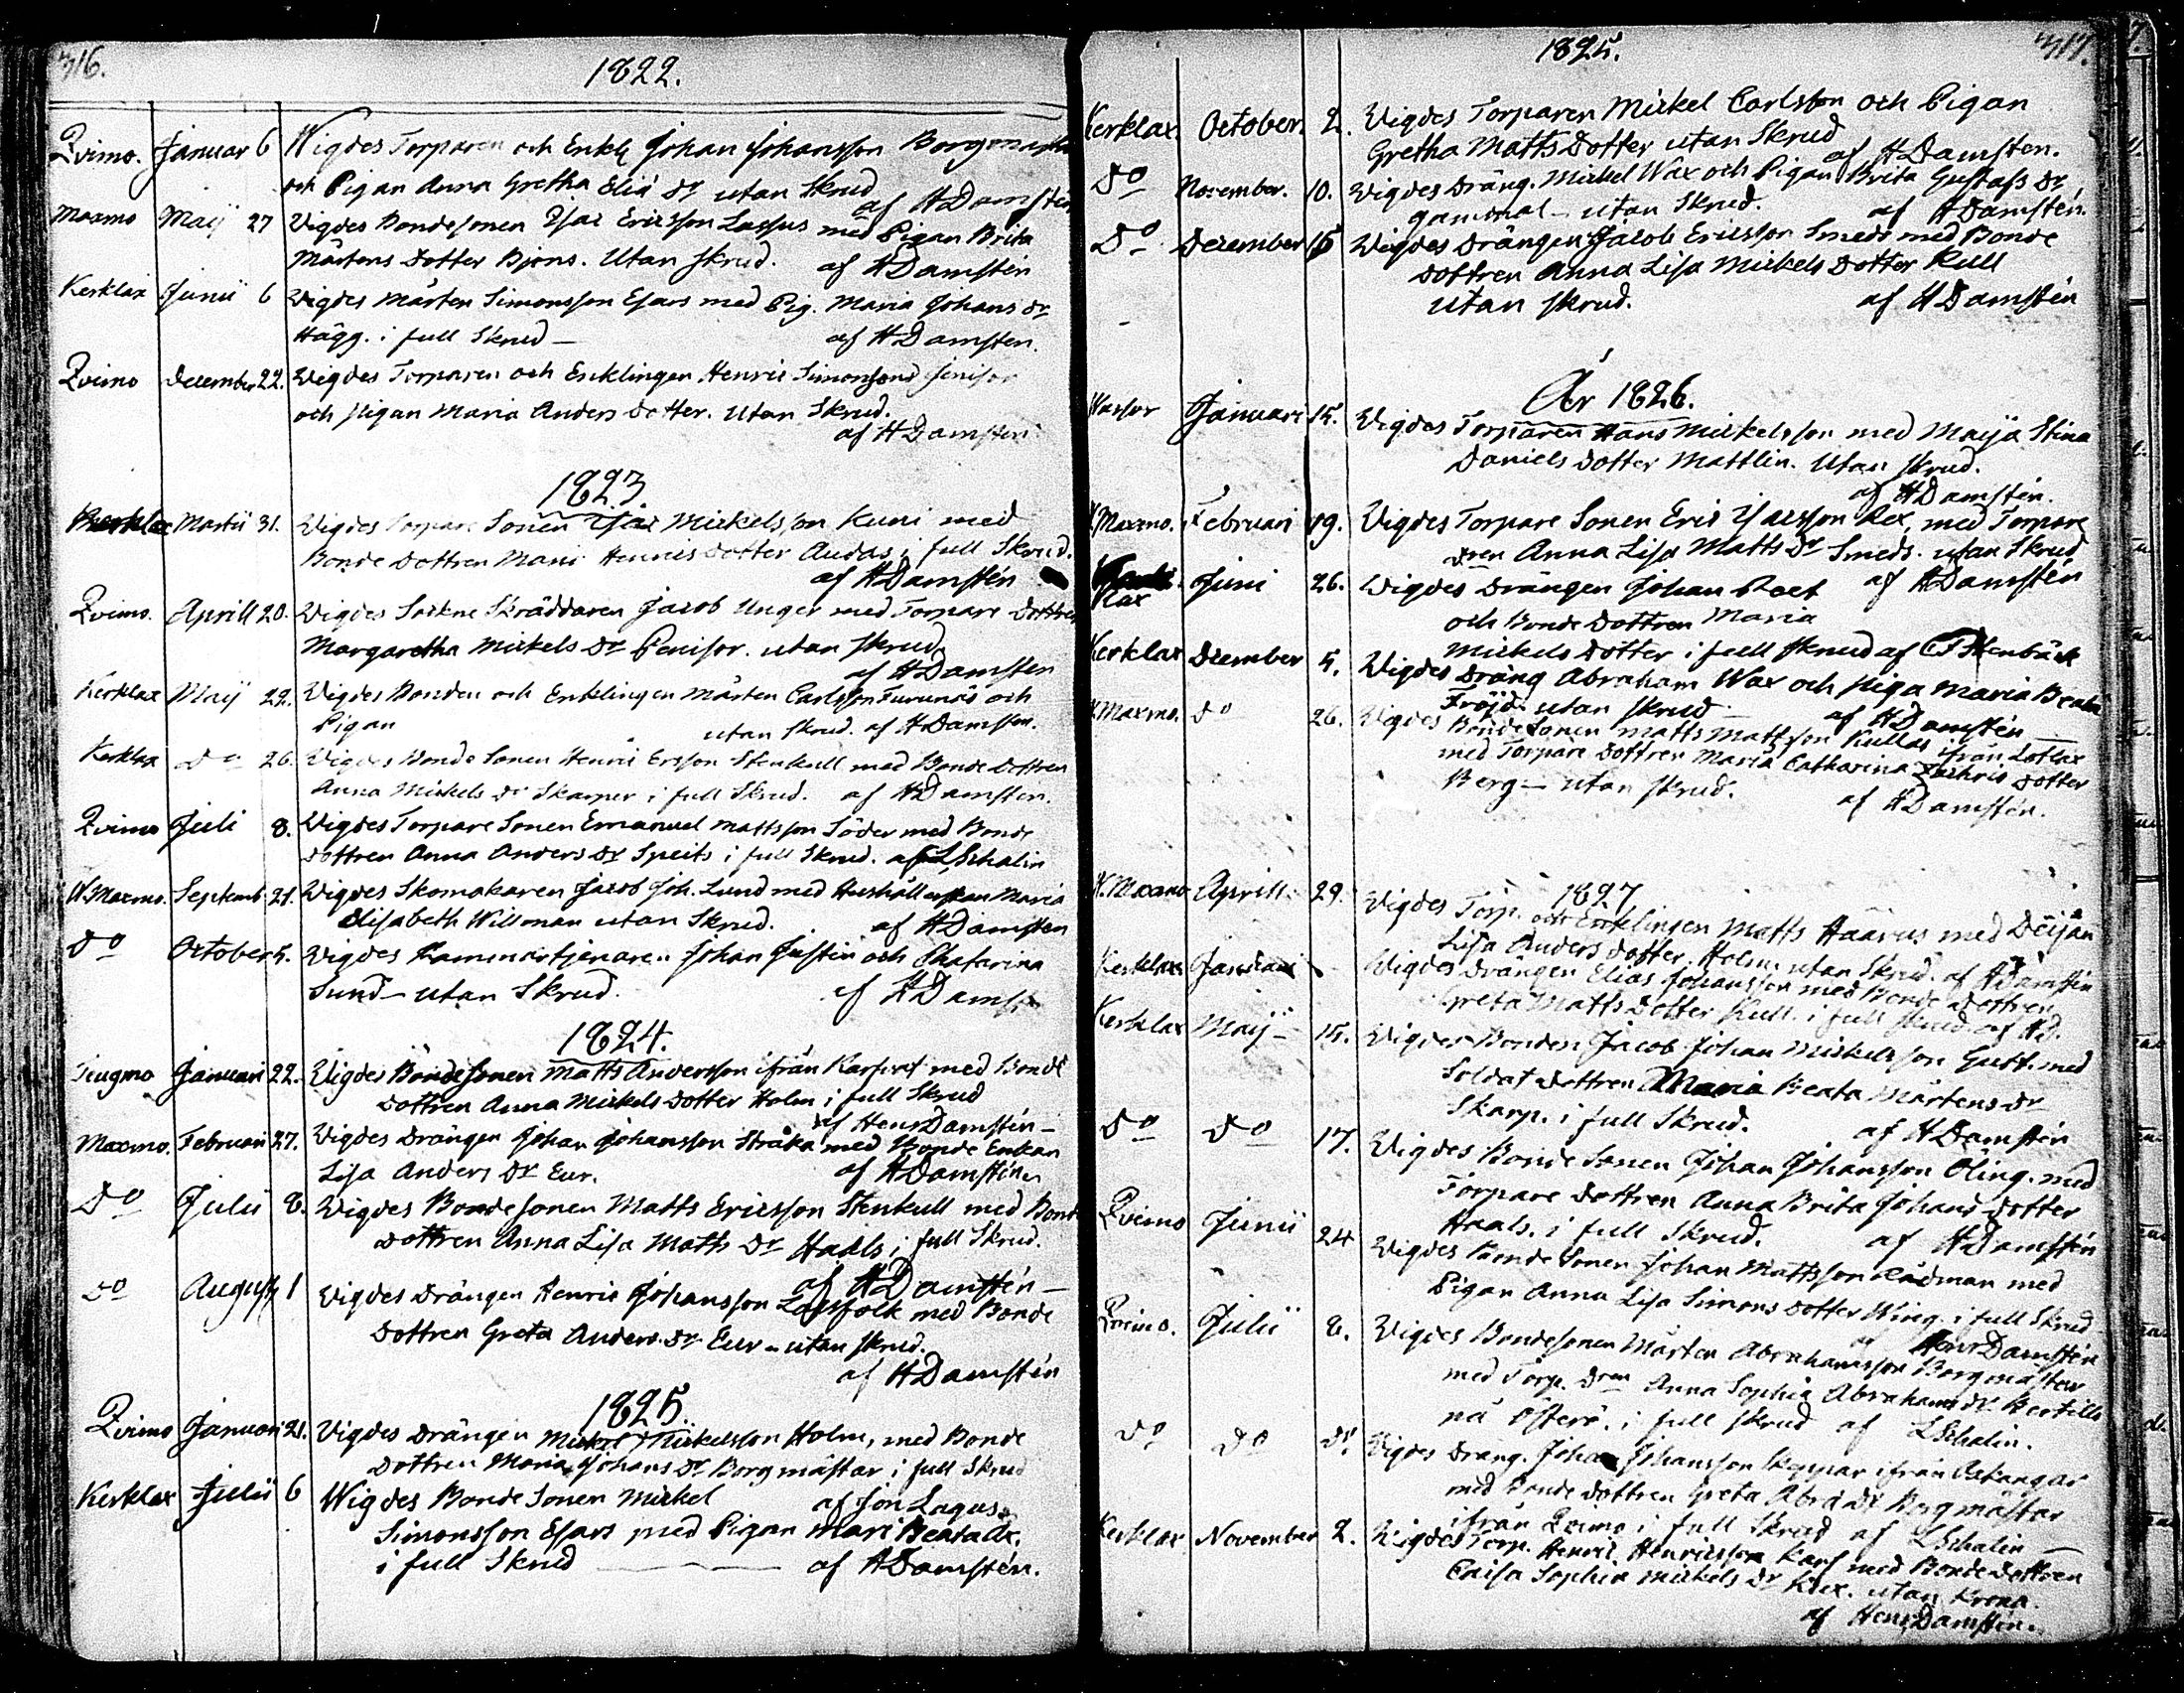 316.
1822.
Qvimo. Januar 6 Wigdes Torparen och Enkl Johan Johansson Borgmästa
och Pigan Anna Gretha Eliæ Dr utan Skrud
af HDamstén
Maxmo Maij 27 Vigdes Bondesonen Isac Ericsson Lassus med Pigan Brita
Mårtens Dotter Bjons. Utan skrud. af HDamstén
Kerklax Junii 6 Vigdes Mårten Simonsson Esars med Pig. Maria Johans Dr
Hägg. i full Skrud — af HDamsten.
Qvimo December 22. Vigdes Torparen och Enklingen Henric Simonsson
och pigan Maria Anders Dotter. Utan Skrud.
af HDamsten
1823.
Kerklax Martii 31. Vigdes Torpare Sonen Isac Mickelsson Kuni med
Bonde Dottren Maria Henrics Dotter Audas i full Skrud.
af HDamstén
Qvimo. Aprill 20. Vigdes Sockne Skräddaren Jacob Unger med Torpare Dottren
Margaretha Mickels Dr Penisor. utan skrud
af HDamsten
Kerklax Maij 22. Vigdes Bonden och Enklingen Mårten Carlsson Furunäs och
Pigan utan Skrud. af HDamsten.
Kerklax Do 26. Vigdes Bonde Sonen Henric Ersson Stenkull med Bonde Dottren
Anna Mickels Dr Skarper i full Skrud. af HDamsten.
Qvimo Juli 8. Vigdes Torpare Sonen Emanuel Mattsson Söder med Bonde
Dottren Anna Anders Dr Speits i full Skrud. af LSchalin
W.Maxmo. Septemb 21. Vigdes Skomakaren Jacob Joh. Lund med Hushållerskan Maria
Elisabeth Willman utan Skrud. af HDamsten
Do October 5. Vigdes Kammartjenaren Johan Justin och Chatarina
Sund — utan Skrud. af HDamst
1824.
Teugmo Januari 22. Vigdes Bondesonen Matts Andersson ifrån Karperö med Bonde
Dottren Anna Mickels Dotter Holm i full Skrud
af HenrDamstén —
Maxmo. Februarii 27. Vigdes Drängen Johan Johansson Stråka med Bonde Enkan
Lisa Anders Dr Eur. af HDamstén
Do Julii 8. Vigdes Bondesonen Matts Ericsson Stenkull med Bonde
Dottren Anna Lisa Matts Dr Haals i full Skrud.
af HDamstén —
Do August 1 Vigdes Drängen Henric Johansson Lassfolk med Bonde
Dottren Greta Anders Dr Eur — utan skrud.
af HDamstén
1825.
Qvimo Januari 21. Vigdes Drängen Mickel Mickelsson Holm, med Bonde
Dottren Maria Johans Dr Borgmästar i full Skrud
af Jon Lagus
Kerklax Julii 6 Wigdes Bonde Sonen Mickel
Simonsson Esars med Pigan Mari Beata Ax.
i full Skrud — af HDamstén.
1825. 317.
Kerklax October. 2. Vigdes Torparen Mickel Carlsson och Pigan
Gretha Matts Dotter utan Skrud
af HDamsten.
Do November. 10. Vigdes Dräng. Mickel Wax och Pigan Brita Gustafs Dr
gammal — utan Skrud. af HDamstén.
Do December 15 Vigdes Drängen Jacob Ericsson Smeds med Bonde
Dottren Anna Lisa Mickels Dotter Kull
utan skrud. af HDamstén
År 1826.
Wassor Januari 15. Vigdes Torparen Hans Mickelsson med Maija Stina
Daniels Dotter Mattlin. Utan skrud.
af HDamstén.
W.Maxmo. Februari 19. Vigdes Torpare Sonen Eric Isacsson Rex, med Torpare
Dren Anna Lisa Matts Dr Smeds. utan Skrud
af HDamstén
lax Juni 26. Wigdes Drängen Johan Roef
och Bonde Dottren Maria
Mickels Dotter i full skrud af Stenbäck
Kerklax December 5. Vigdes Dräng Abraham Wax och piga Maria Beata
Fröjd. utan skrud — af HDamstén —
W.Maxmo. Do 26. Vigdes Bonde Sonen Matts Mattsson Kullas ifrån Lotlax
med Torpare Dottren Maria Catharina Zachris Dotter
Berg — utan skrud. af HDamstén.
1827
W.Maxmo Aprill 29. Vigdes Torp. och Enklingen Matts Häärus med Deijan
Lisa Anders Dotter Holm. utan Skrud. af HDamstén
Kerklax Vigdes Drängen Elias Johansson med Bonde Dottren
Greta Matts Dotter Kull. i full skrud. af HD.
Kerklax Maij — 15. Vigdes Bonden Jacob Johan Mickelsson Gutt. med
Soldat Dottren Maria Beata Mårtens Dr
Skarp. i full Skrud. af HDamstén
Do Do 17. Vigdes Bonde Sonen Johan Johansson Öling. med
Torpare Dottren Anna Brita Johans Dotter
Haals. i full Skrud. af HDamstén
Qvimo Junii 24 Vigdes Bonde Sonen Johan Mattsson Rådman med
Pigan Anna Lisa Simons Dotter Wing. i full Skrud
af HenrDamstén
Qvimo. Julii 8. Vigdes Bondesonen Mårten Abrahamsson Borgmästar
med Torp. Dren Anna Sophia Abrahams Dr Bertills
på Österö. i full skrud af LSchalin.
Do Do Do Vigdes Dräng. Johan Johansson Skeppar ifrån Oskangar
med Bonde Dottren Greta Abra Dr Borgmästar
ifrån Qvimo i full Skrud af LSchalin —
Kerklax November 2. Vigdes Torp. Henric Henricsson Karf med Bonde Dottren
Caisa Sophia Mickels Dr Kux. utan Krona.
af HenrDamstén.